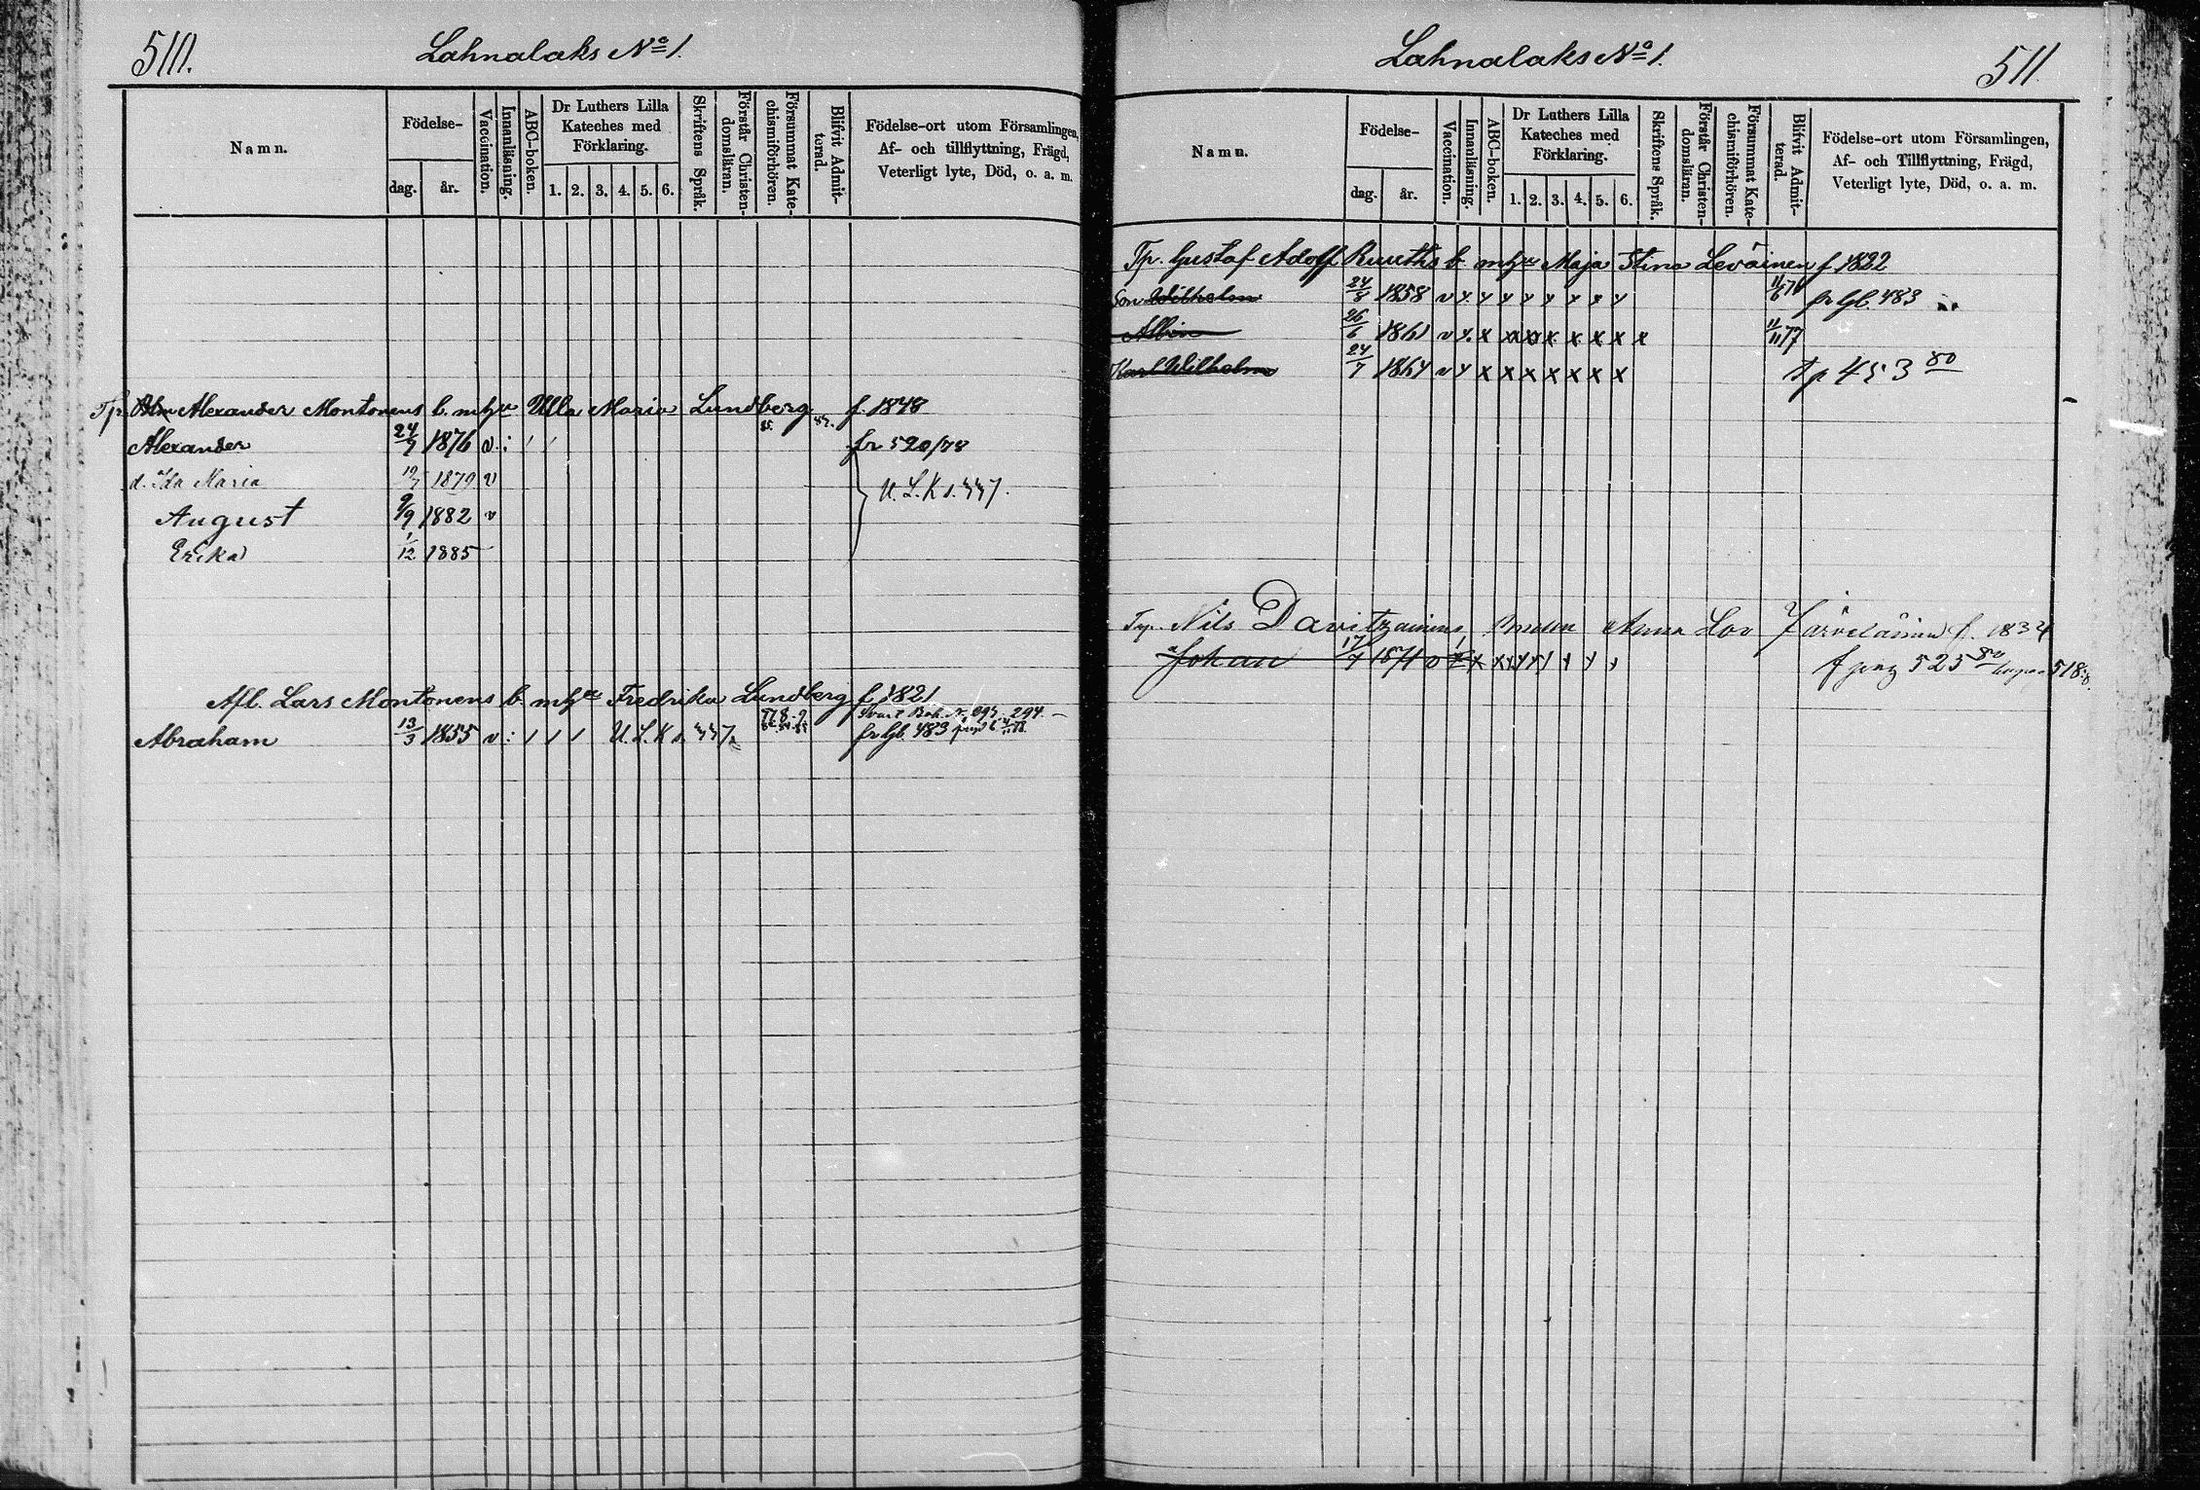 510.
Lahnalaks No 1.
Namn.
Födelse-
dag.
år.
Vaccination.
Innanläsning.
ABC-boken.
Dr Luthers Lilla
Kateches med
Förklaring.
1. 2. 3. 4. 5. 6.
Skriftens Språk.
Förstår Christen-
domsläran.
Försummat Kate-
chismiförhören.
Blifvit Admit-
terad.
Födelse-ort utom Församlingen,
Af- och tillflyttning, Frägd,
Veterligt lyte, Död, o. a. m.
Tp. Alexander Montonens b. m hu Ulla Maria Lundberg f. 1848
Alexander 24/7 1876 v. fr 520/78
d. Ida Maria 1879 v U. L. K s. 447.
August 9/9 1882 v
Erika 1/12 1885
Afl. Lars Montonens b. m hu Fredrika Lundberg f. 1821
Abraham 13/3 1855 v U. L. K s. 447. fr Gb. 483
511
Lahnalaks No 1.
Namn.
Födelse-
dag.
år.
Vaccination.
Innanläsning.
ABC-boken.
Dr Luthers Lilla
Kateches med
Förklaring.
1. 2. 3. 4. 5. 6.
Skriftens Språk.
Förstår Christen-
domsläran.
Försummat Kate-
chismiförhören.
Blifvit Admit-
terad.
Födelse-ort utom Församlingen,
Af- och Tillflyttning, Frägd,
Veterligt lyte, Död, o. a. m.
Tp. Gustaf Adolf Ruuths b. m hu Maja Stina Leväinen f 1822
Son Wilhelm 24/8 1858 v x x x x x x x x fr Gb. 483
Albin 26/6 1861 v x x x x x x x x x 11/11 77
Karl Wilhelm 24/7 1864 v x x x x x x x x tp 453 80
Nils Davitzainens Anna Lov Järveläinen f. 1834
Johan 17/7 1871 v 525 80 518